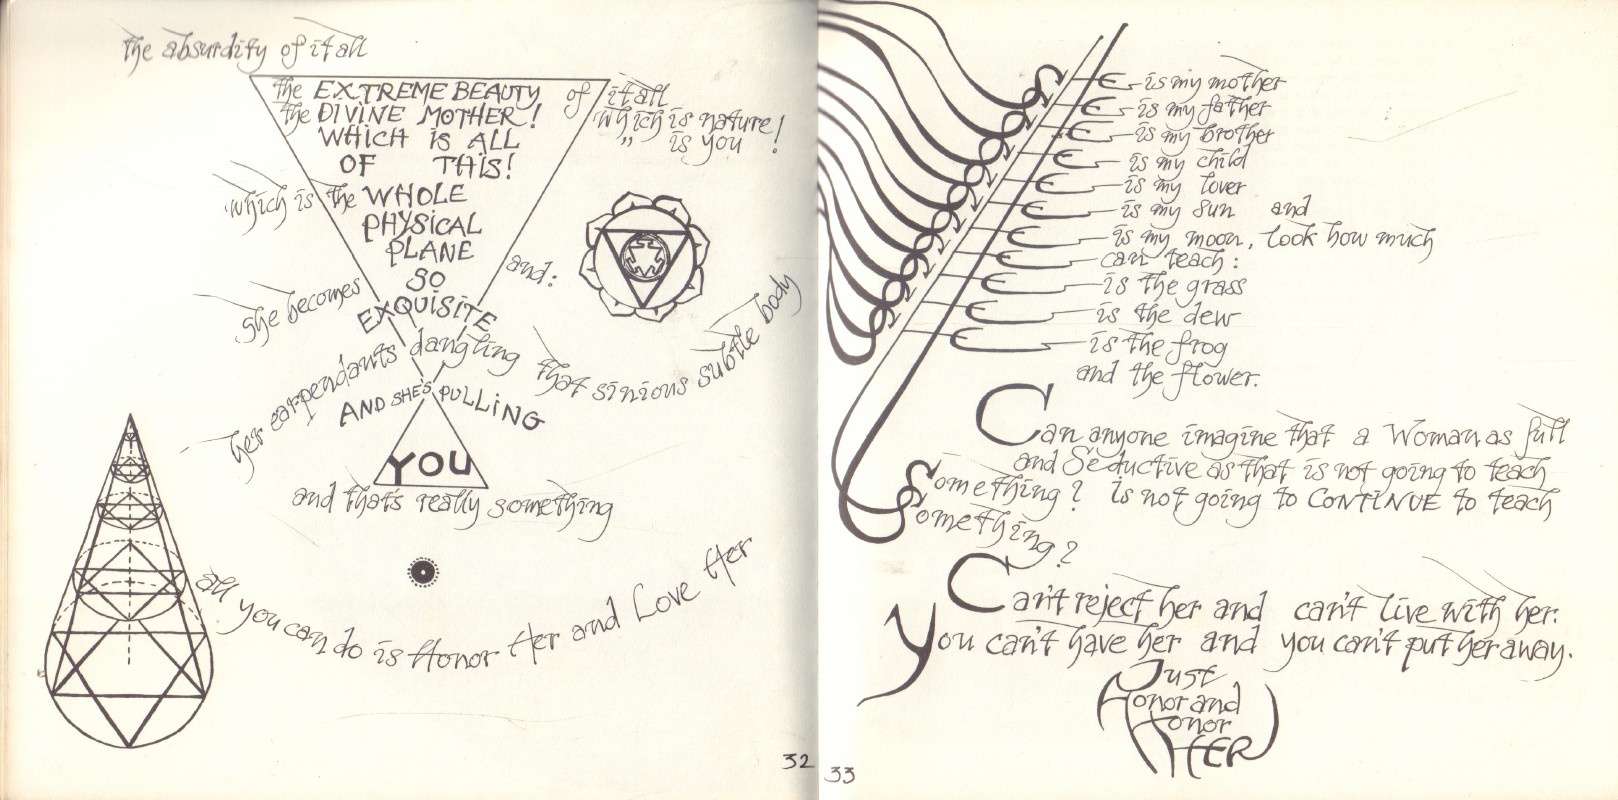 the absurdity of it all
the EXTREME BEAUTY of it all
the DIVINE MOTHER! which is nature!
WHICH IS ALL " is you !
OF THIS!
which is the WHOLE
PHYSICAL
PLANE
SO
and:
she becomes EXQUISITE
her earpendants dangling that sinious subtle body
AND SHE'S PULLING
YOU
and that's really something
all you can do is Honor Her and Love Her
32
is my mother
is my father
is my brother
is my child
is my lover
is my sun and
is my moon, look how much
can teach:
is the grass
is the dew
is the frog
and the flower.
Can anyone imagine that a Woman as full
and Seductive as that is not going to teach
Something? is not going to CONTINUE to teach
Something?
Can't reject her and can't live with her:
You can't have her and you can't put her away.
Just
Honor and
Honor
HER
33